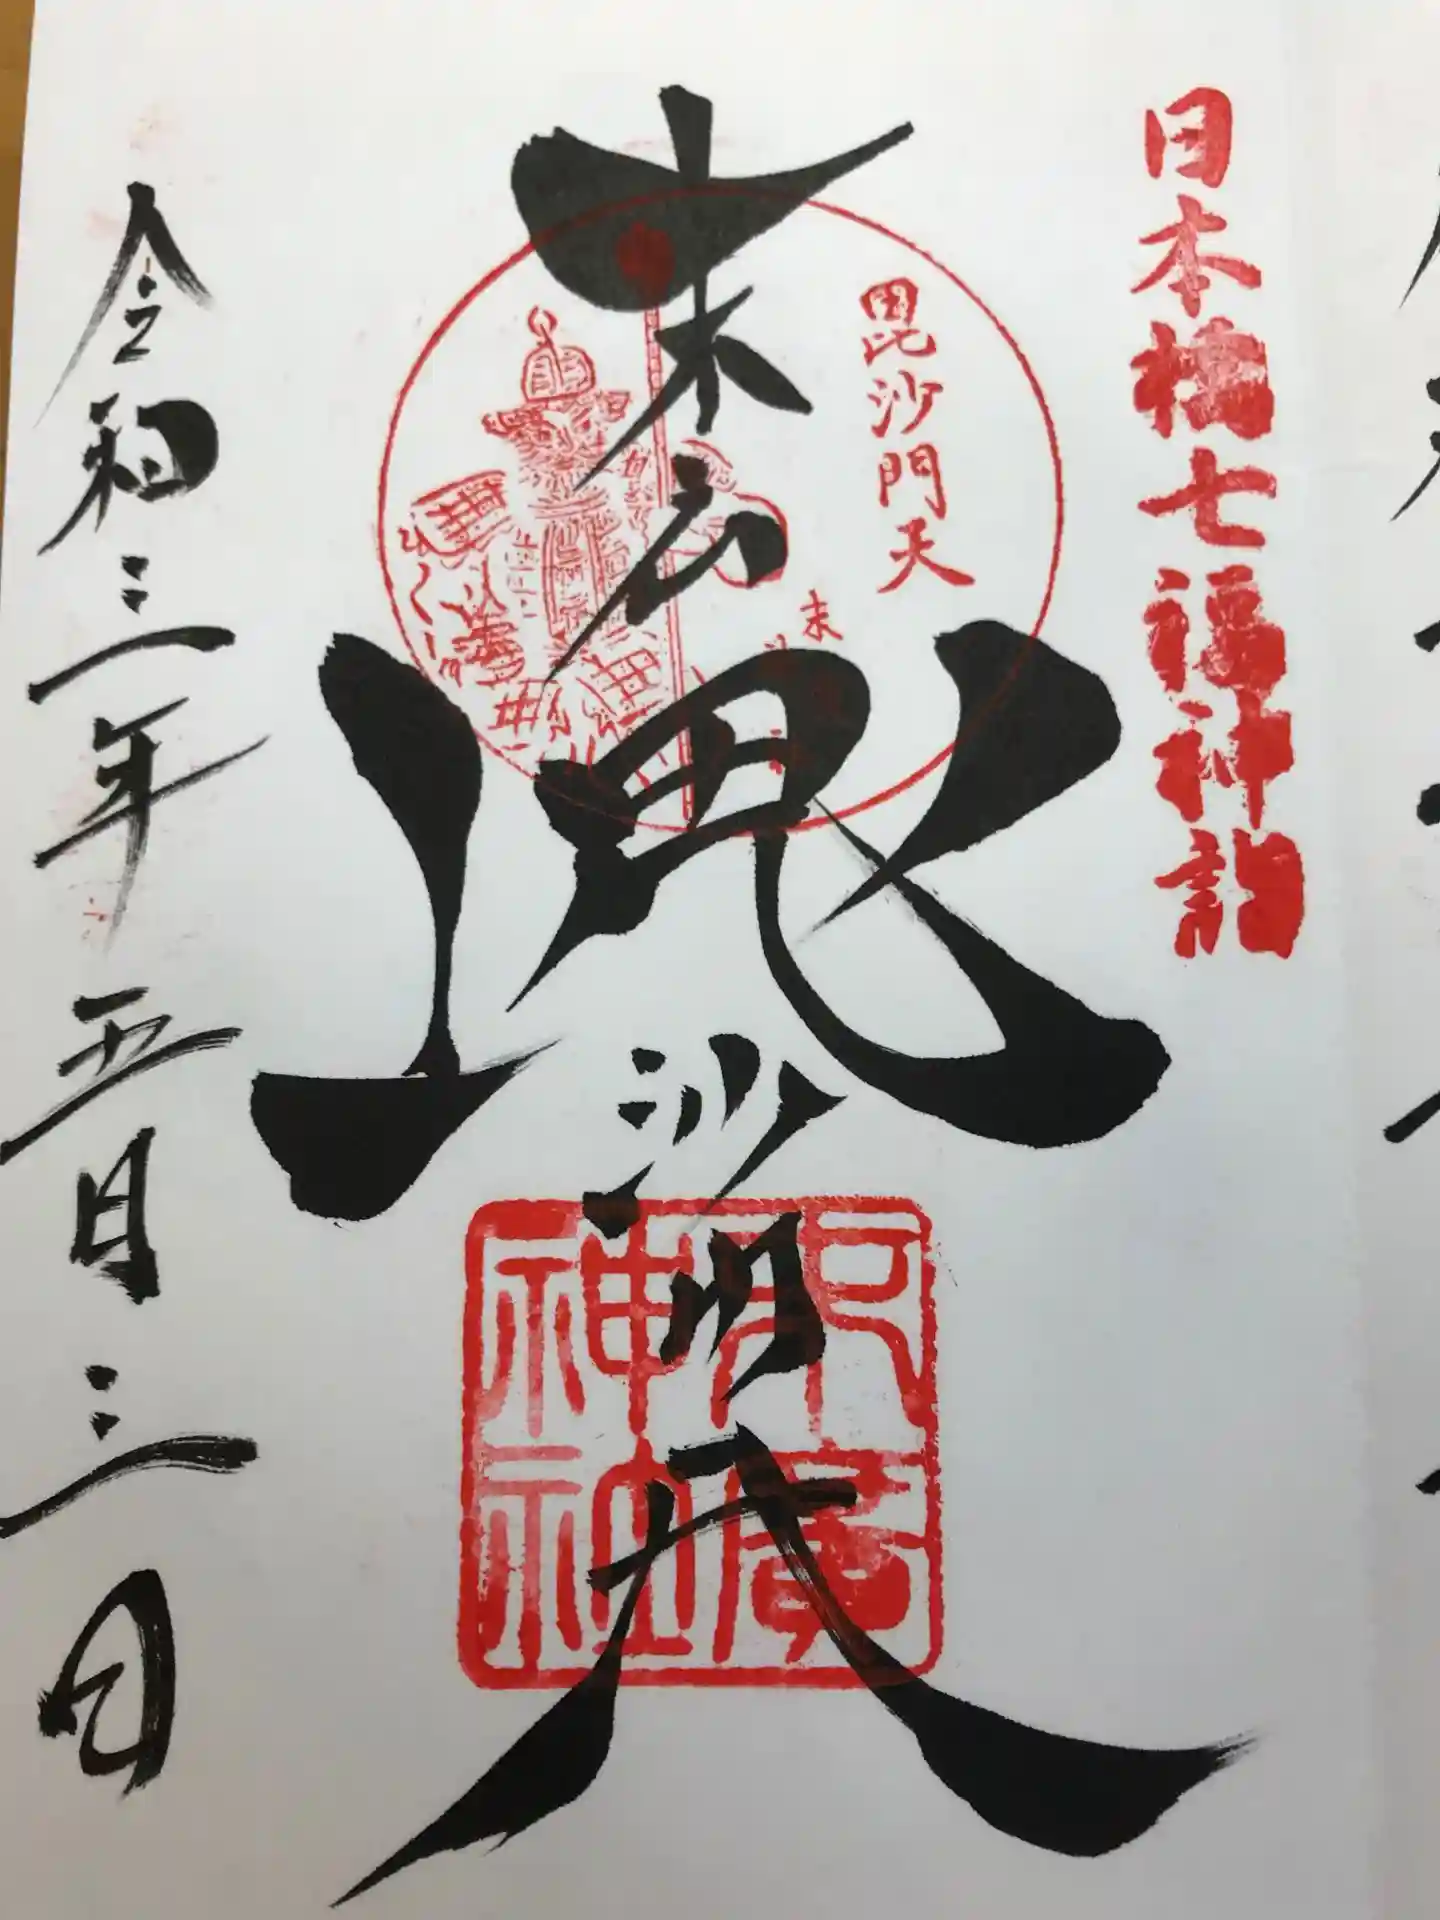 日本橋七福神詣
毘沙門天
末広
毘沙門天
末廣
神社
令和三年五月三日